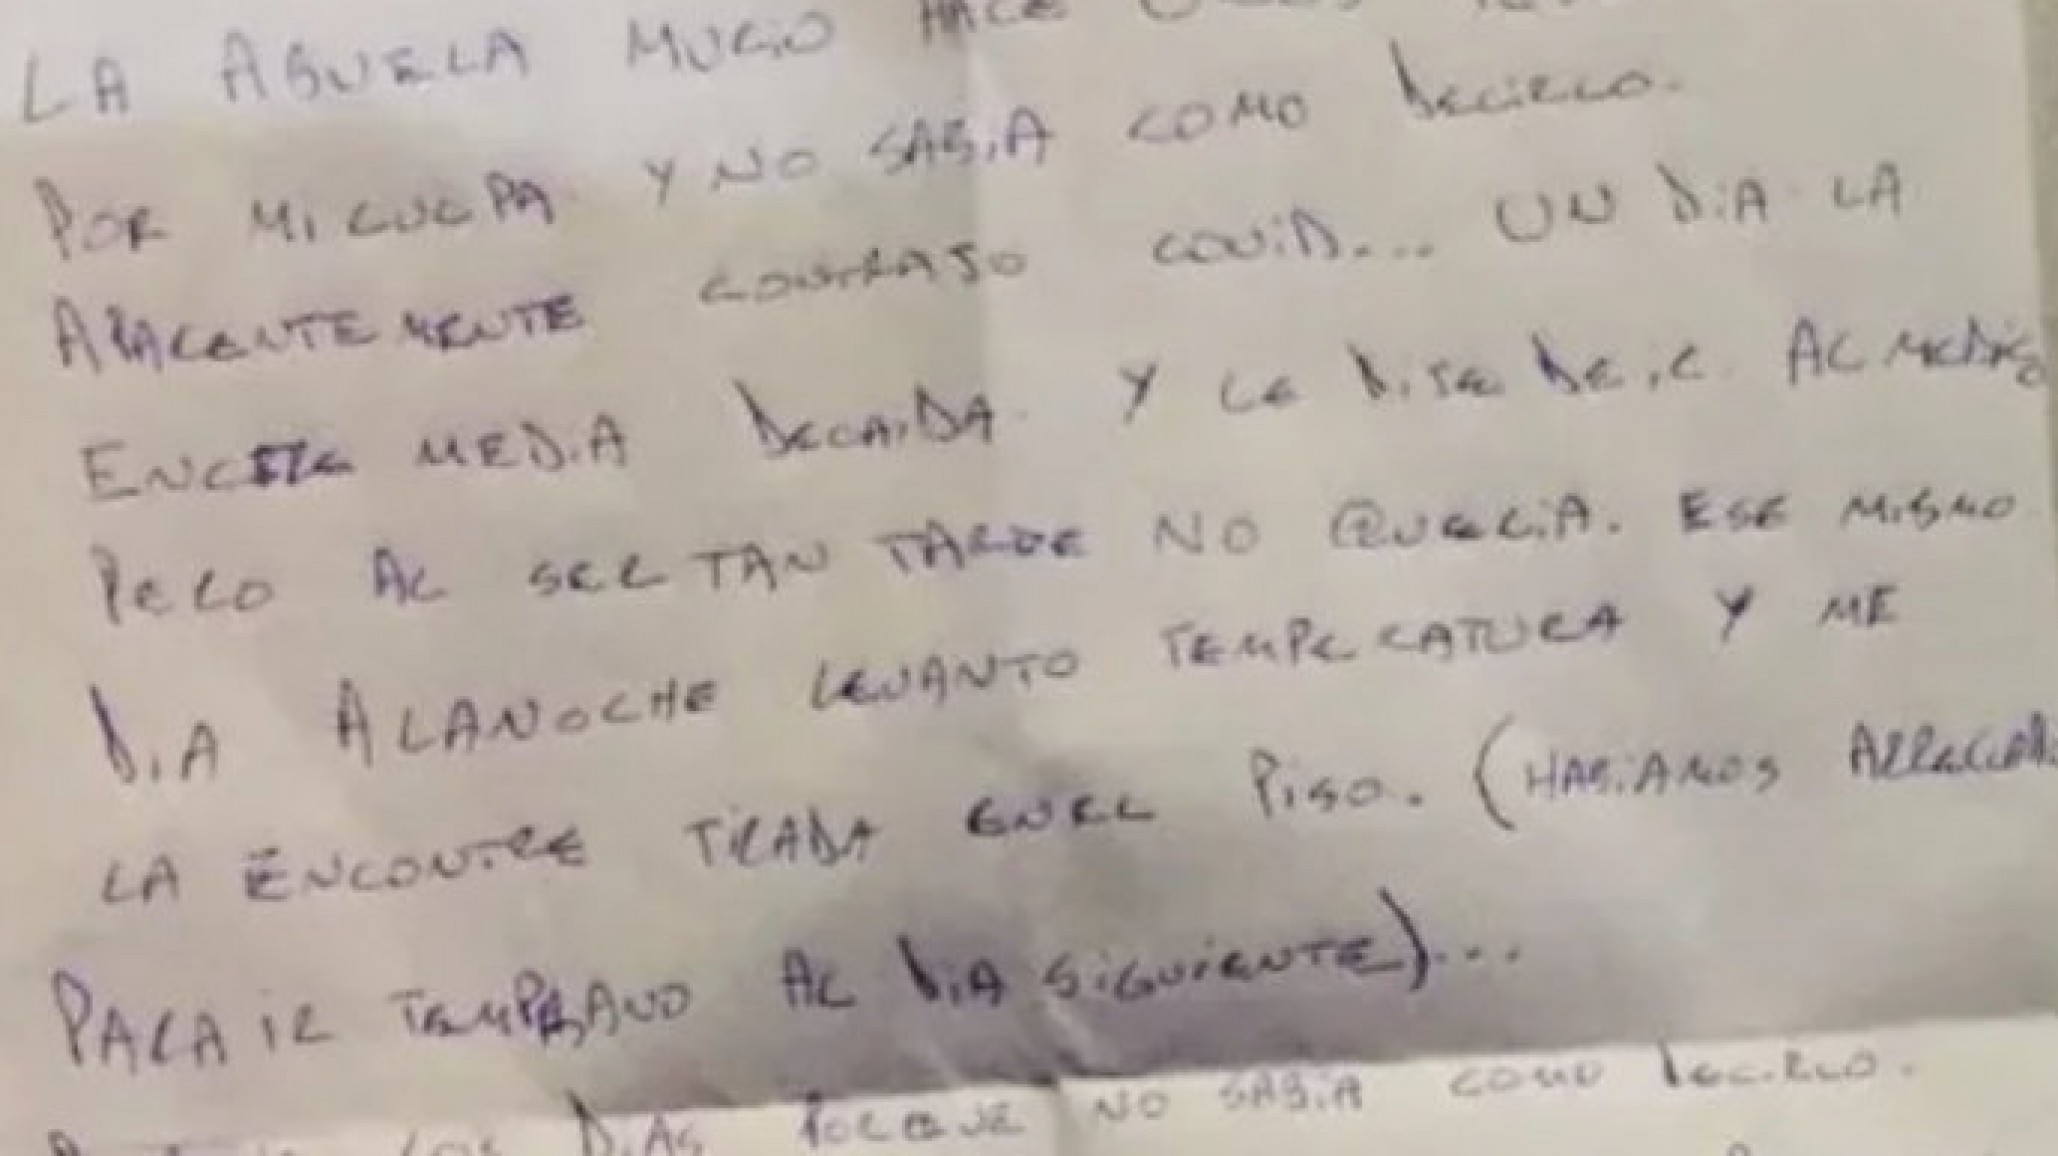 LA ABUELA MURiO HACE
POR MI CULPA Y NO SABiA COMO DECIRLO.
APARENTEMENTE CONTRAJO COViD... UN DiA LA
ENCETRE MEDiA DECAiDA Y LE DiJE DE iR AL MEDiCO
PERO AL SER TAN TARDE NO QUERiA. ESE MiSMO
DiA ALANOCHE LEVANTO TEMPERATURA Y ME
LA ENCONTRE TiRADA ENEL PiSO. (HABiAMOS
PARA iR TEMPRANO AL DiA SiGUiENTE)...
LOS DiAS PORQUE NO SABiA COMO DECiRLO.